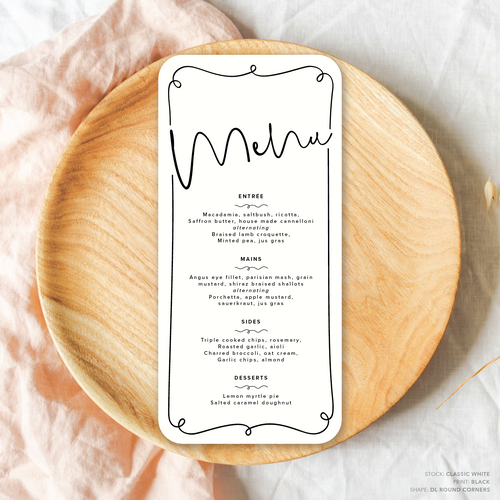 Menu
ENTREE
Macadamia, saltbush, ricotta,
Saffron butter, house made cannelloni
alternating
Braised lamb croquette,
Minted pea, jus gras
MAINS
Angus eye fillet, parisian mash, grain
mustard, shiraz braised shallots
alternating
Porchetta, apple mustard,
sauerkraut, jus gras
SIDES
Triple cooked chips, rosemary,
Roasted garlic, aioli
Charred broccoli, oat cream,
Garlic chips, almond
DESSERTS
Lemon myrtle pie
Salted caramel doughnut
STOCK: CLASSIC WHITE
PRINT: BLACK
SHAPE: DL ROUND CORNERS